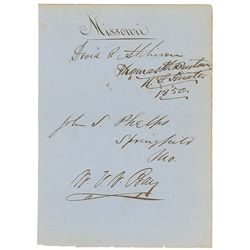 Missouri
David R Atchison
Thomas H. Benton
U. S. Senator
1850.
John S. Phelps
Springfield
Mo.
W. V. N. Bay